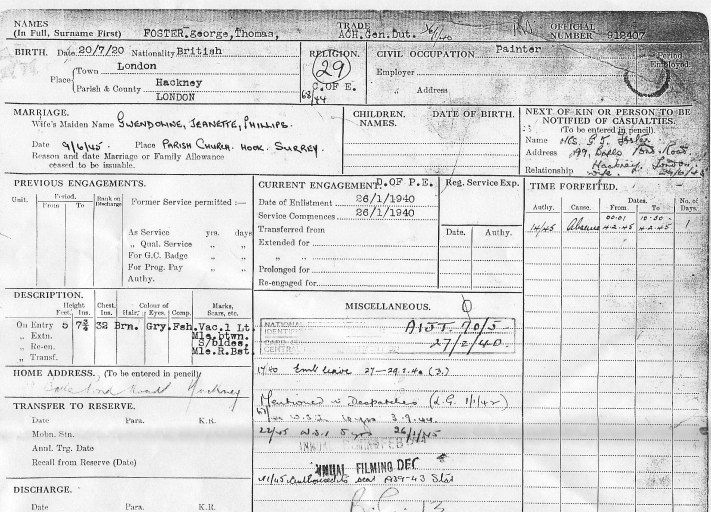 NAMES
(In Full, Surname First) FOSTER.george,Thomas,
TRADE
ACH.Gen.Dut.
OFFICIAL
NUMBER 912407
BIRTH. Date 20/7/20 Nationality British
Place Town London
Parish & County Hackney
LONDON
RELIGION.
29
C.OF E.
68/84
CIVIL OCCUPATION Painter
Employer
„ Address
Employed
MARRIAGE.
Wife's Maiden Name GWENDOLINE, JEANETTE, PHILLIPS.
Date 9/6/45. Place PARISH CHURCH. HOOK. SURREY.
Reason and date Marriage or Family Allowance
ceased to be issuable.
CHILDREN.
NAMES.
DATE OF BIRTH.
NEXT OF KIN OR PERSON TO BE
NOTIFIED OF CASUALTIES.
(To be entered in pencil).
Name Mrs. G. J. Foster
Address
Hackney, London
Relationship wife
PREVIOUS ENGAGEMENTS.
Unit. Period. From To Rank on Discharge Former Service permitted :—
As Service yrs. days
„ Qual. Service „ „
For G.C. Badge „ „
For Prog. Pay „ „
Authy.
CURRENT ENGAGEMENT D.OF P.E.
Date of Enlistment 26/1/1940
Service Commences 26/1/1940
Transferred from
Extended for
„ „
Prolonged for
Re-engaged for
Reg. Service Exp.
Date. Authy.
TIME FORFEITED.
Authy. Cause. Dates. From. To. No. of Days.
00.01 10.30
14/45 Absence 4-2-45 4-2-45 1
DESCRIPTION.
Height Feet. Ins. Chest. Ins. Colour of Hair. Eyes. Comp. Marks, Scars, etc.
On Entry 5 7¾ 32 Brn. Gry. Fsh. Vac.1 Lt.
„ Extn. Mle.btwn.
„ Re-en. S/bldes.
„ Transf. Mle.R.Bst.
MISCELLANEOUS.
NATIONAL
IDENTI
CENTR
A1JT 70/5
27/2/40
HOME ADDRESS. (To be entered in pencil)
Road Hackney
17/40 Emb leave 27-29.2.40 (3.)
Mentioned in Despatches (L.G. 1/1/42)
3.9.44.
22/45 5 yrs 26/1/45
FEB
ANNUAL FILMING DEC
Authorised to wear 1939-43 Star
TRANSFER TO RESERVE.
Date Para. K.R.
Mobn. Stn.
Annl. Trg. Date
Recall from Reserve (Date)
DISCHARGE.
Date Para. K.R.